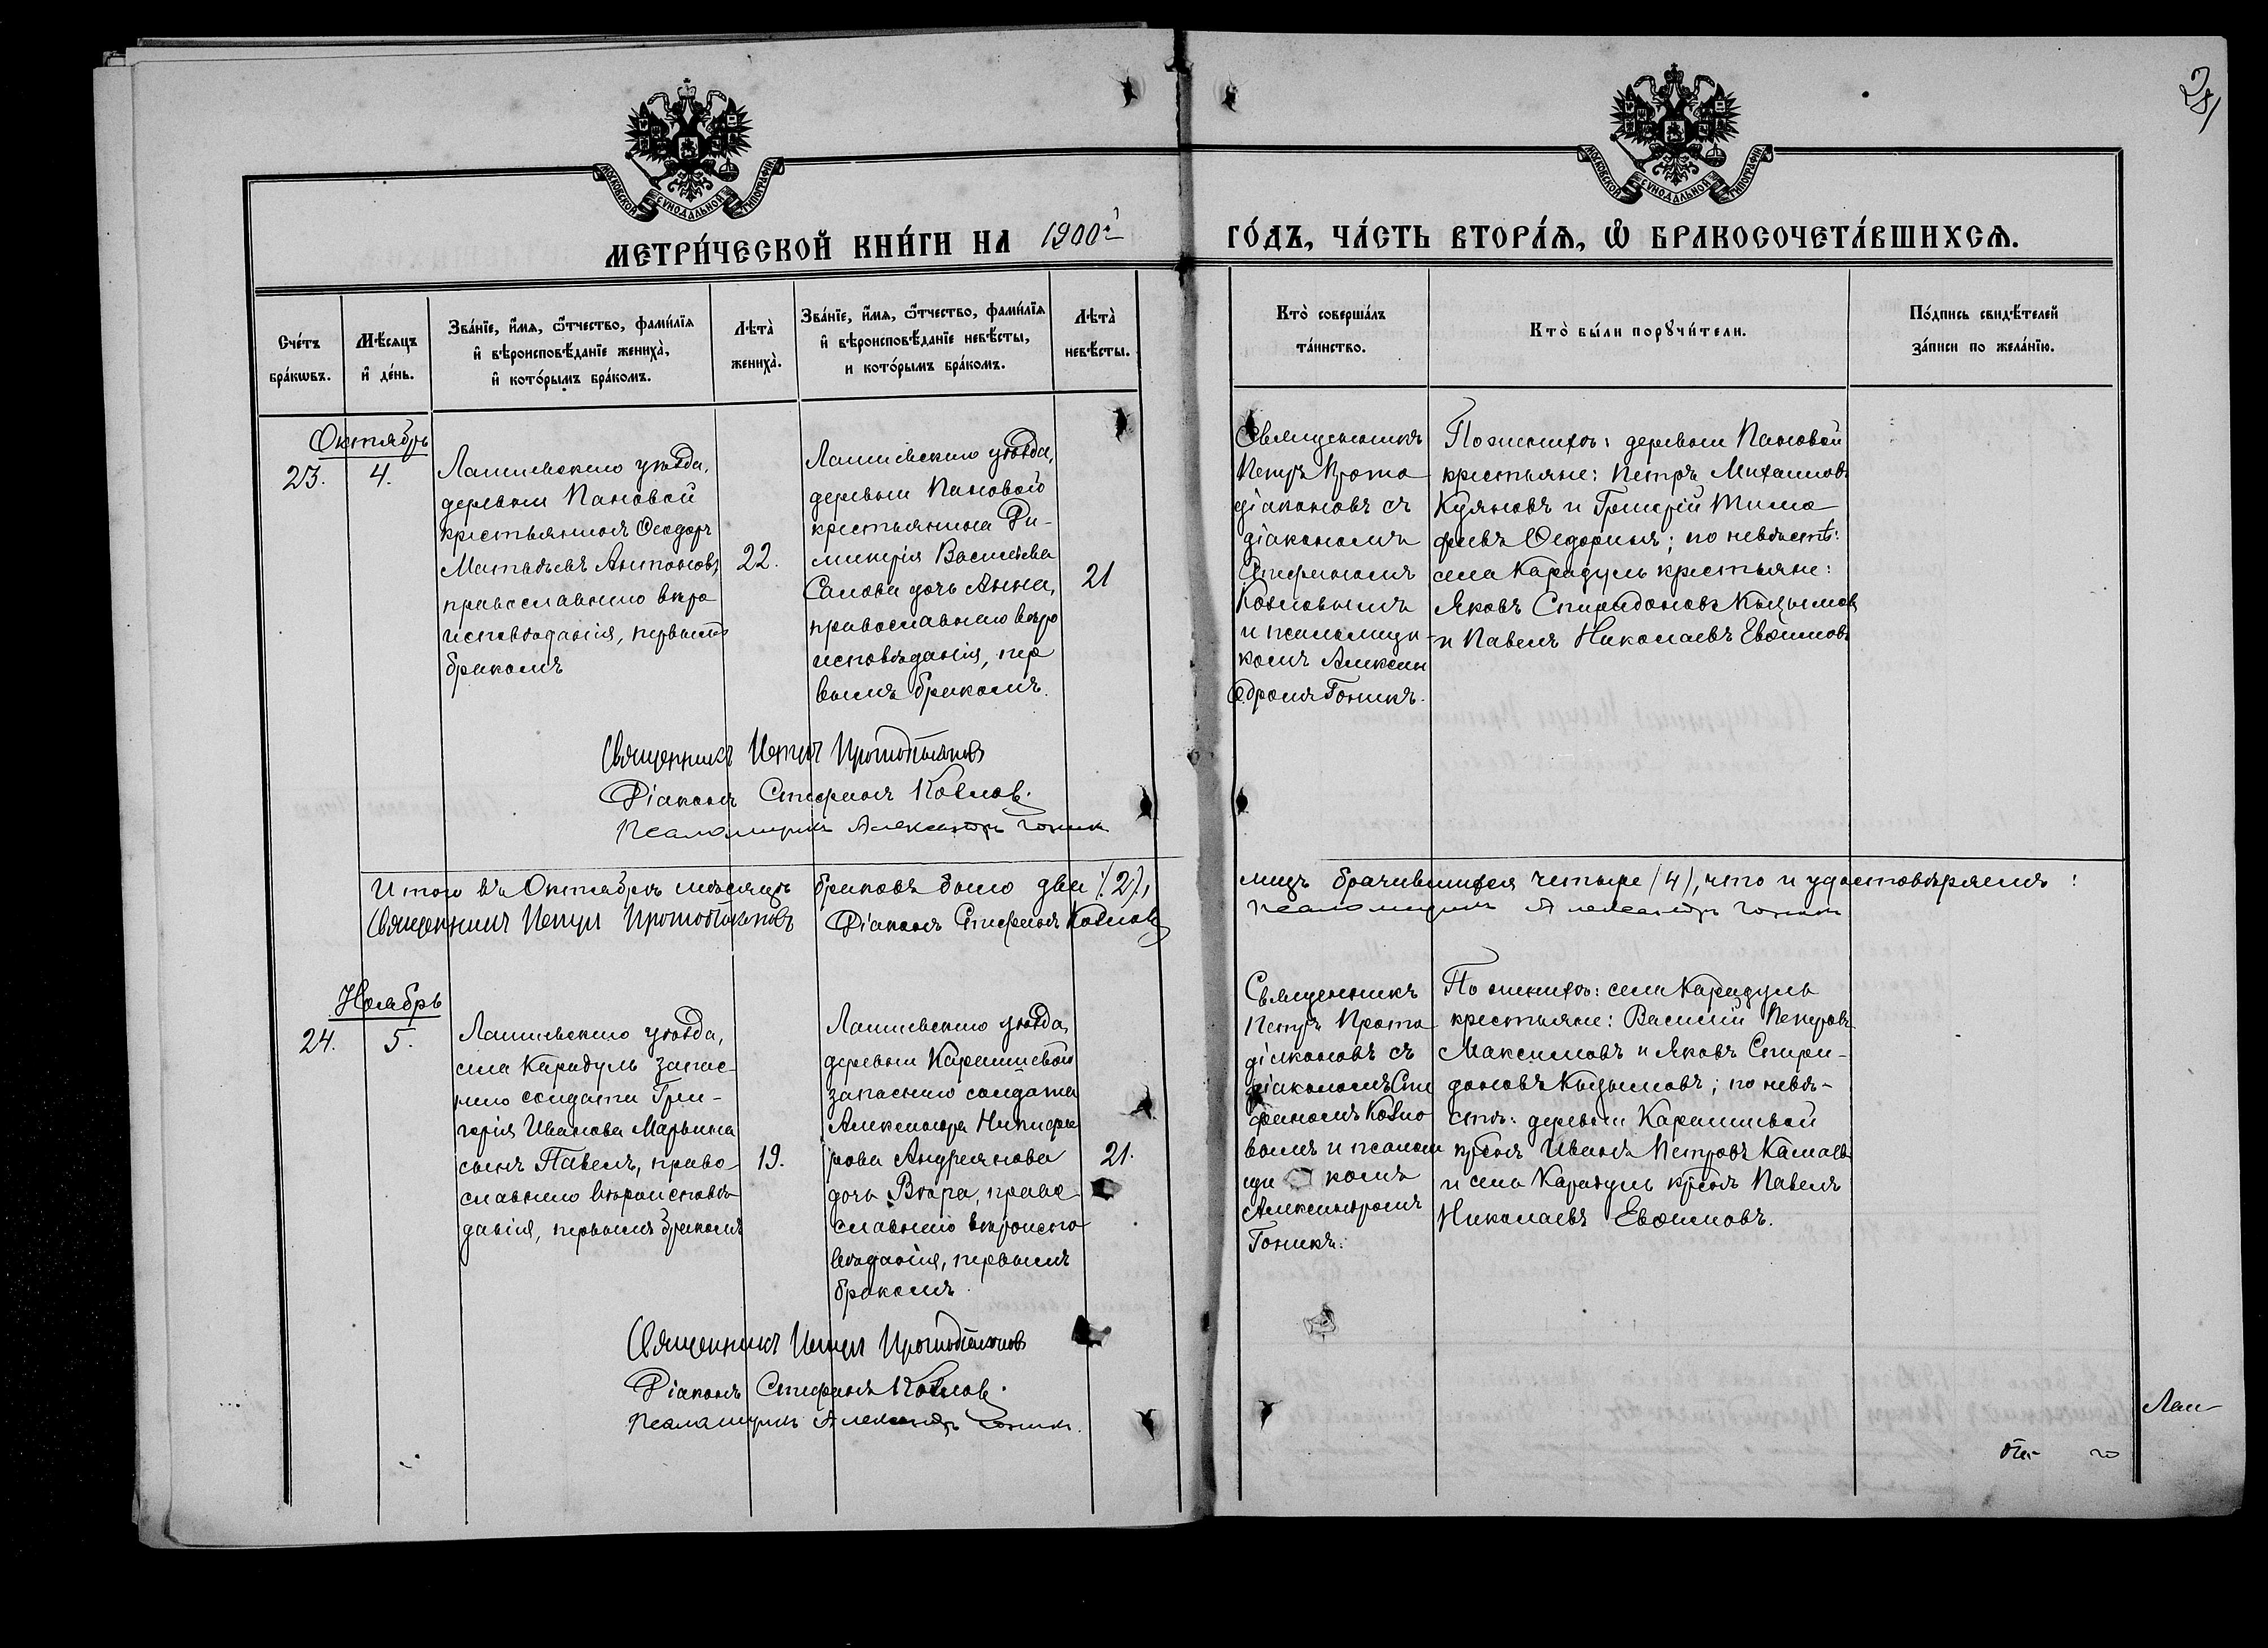 28
МОСКОВСКОЙ СѴНОДАЛЬНОЙ ТИПОГРАФІИ
МОСКОВСКОЙ СѴНОДАЛЬНОЙ ТИПОГРАФІИ
МЕТРИ́ЧЕСКОЙ КНИ́ГИ НА 1900й
ГО́ДЪ, ЧА́СТЬ ВТОРА́Ѧ, Ѡ҆ БРАКОСОЧЕТА́ВШИХСѦ.
Сче́тъ
бра́кѡвъ.
Мѣ́сѧцъ
и҆ де́нь.
Зва́нїе, и҆́мѧ, ѻ҆́тчество, фамі́лїѧ
и҆ вѣроисповѣ́данїе женихà,
и҆ кото́рымъ бра́комъ.
Лѣтà
женихà.
Зва́нїе, и҆́мѧ, ѻ҆́тчество, фамі́лїѧ
и҆ вѣроисповѣ́данїе невѣ́сты,
и кото́рымъ бра́комъ.
Лѣтà
невѣ́сты.
Ктò соверша́лъ
та́инство.
Ктò бы́ли порꙋчи́тели.
По́дпись свидѣ́телей
за́писи по жела́нїю.
Октябрь
23.
4.
Лаишевскаго уѣзда,
деревни Пановой
крестьянинъ Ѳеодоръ
Матвѣевъ Антоновъ,
православнаго вѣро
исповѣданія, первымъ
бракомъ
22.
Лаишевскаго уѣзда,
деревни Пановой
крестьянина Ди-
митрія Васильева
Салова дочь Анна,
православнаго вѣро
исповѣданія, пер
вымъ бракомъ.
21
Священникъ
Петръ Прото
діаконовъ съ
діакономъ
Стефаномъ
Козловымъ
и псаломщи-
комъ Алексан
дромъ Гоникъ.
По женихѣ: деревни Пановой
крестьяне: Петръ Михаиловъ
Куяновъ и Григорій Тимо
феевъ Ѳедоринъ; по невѣстѣ:
села Карадуль крестьяне:
Яковъ Спиридоновъ Кызымовъ
и Павелъ Николаевъ Евѳимовъ
Священникъ Петръ Протодіаконовъ
Діаконъ Стефанъ Козлов.
Псаломщикъ Александръ Гоникъ
Итого въ Октябрѣ мѣсяцѣ браковъ было два /2/,
лицъ брачившихся четыре /4/, что и удостовѣряемъ:
Священникъ Петръ Протодіаконовъ Діаконъ Стефанъ Козловъ
Псаломщикъ Александръ Гоникъ
Ноябрь
24.
5.
Лаишевскаго уѣзда,
села Карадуль запас-
наго солдата Гри-
горія Иванова Марьина
сынъ Павелъ, право-
славнаго вѣроисповѣ-
данія, первымъ бракомъ
19.
Лаишевскаго уѣзда,
деревни Карашевой
запаснаго солдата
Александра Никифо
рова Андреянова
дочь Вѣра, право
славнаго вѣроиспо
вѣданія, первымъ
бракомъ.
21.
Священникъ
Петръ Прото
діаконовъ съ
діакономъ Сте
фаномъ Козло
вымъ и псалом
щи комъ
Александромъ
Гоникъ.
По женихѣ: села Карадуль
крестьяне: Василій Петровъ
Максимовъ и Яковъ Спири-
доновъ Кызымовъ; по невѣ-
стѣ: деревни Карашевой
кр̃стн̃ъ Иванъ Петровъ Камаевъ
и села Карадуль кр̃стн̃ъ Павелъ
Николаевъ Евѳимовъ.
Священникъ Петръ Протодіаконовъ
Діаконъ Стефанъ Козлов.
Псаломщикъ Александръ Гоникъ.
Лаи-